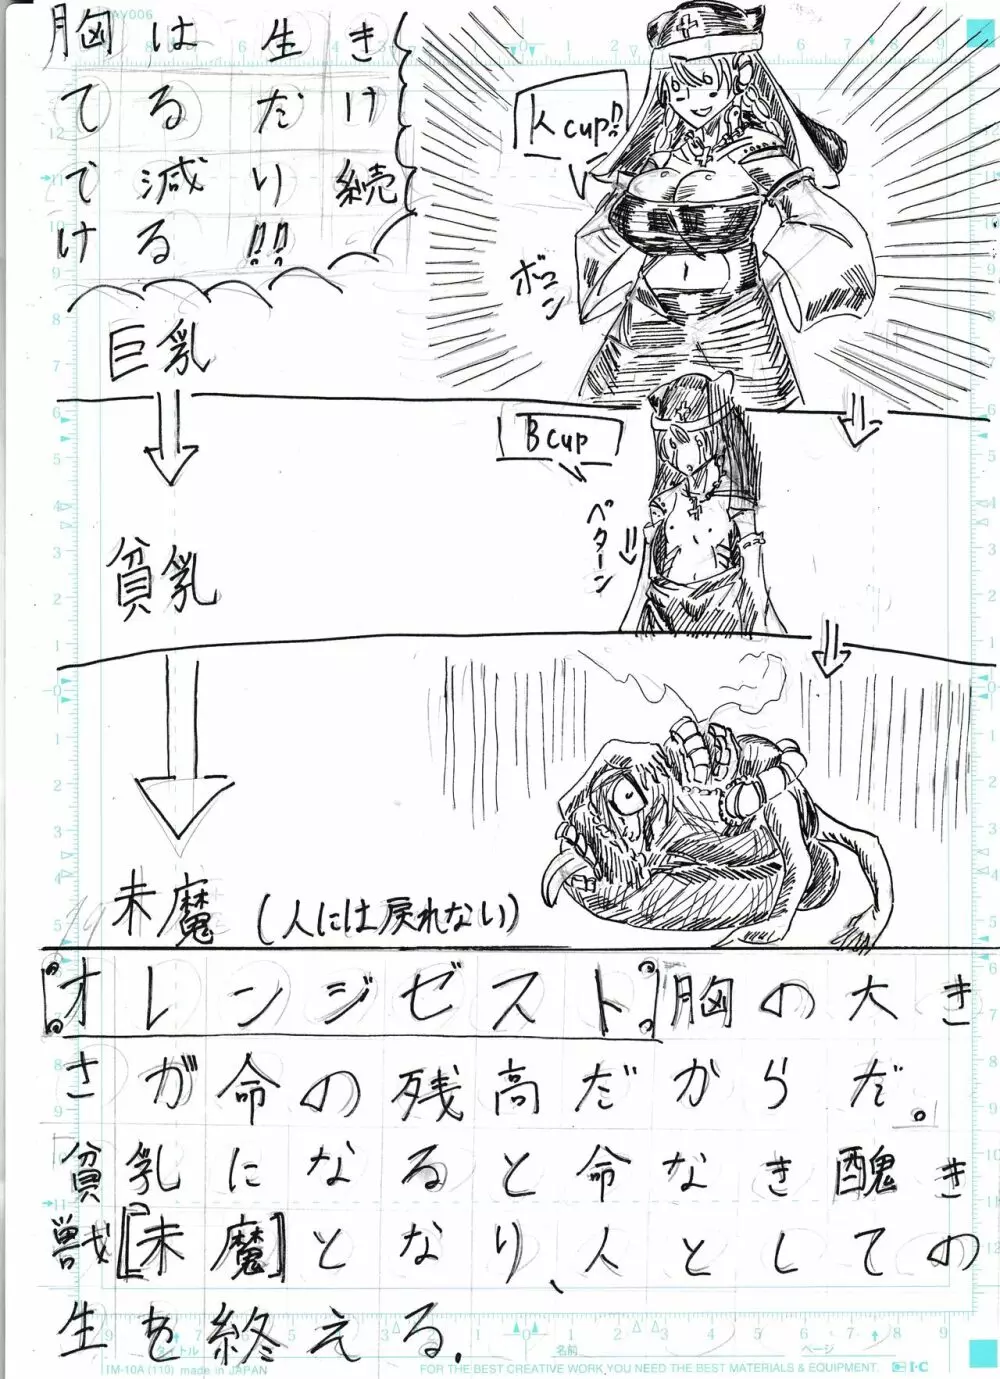 AV006
胸は生き
てるだけ
で減り続
ける!!
K cup!!
ボヨン
巨乳
B cup
ペターン
貧乳
未魔
(人には戻れない)
オレンジゼスト。胸の大き
さが命の残高だからだ。
貧乳になると命なき醜き
獣[未魔]となり、人としての
生を終える.
タイトル
名前
ページ
IM-10A (110) made in JAPAN
FOR THE BEST CREATIVE WORK, YOU NEED THE BEST MATERIALS & EQUIPMENT.
I·C